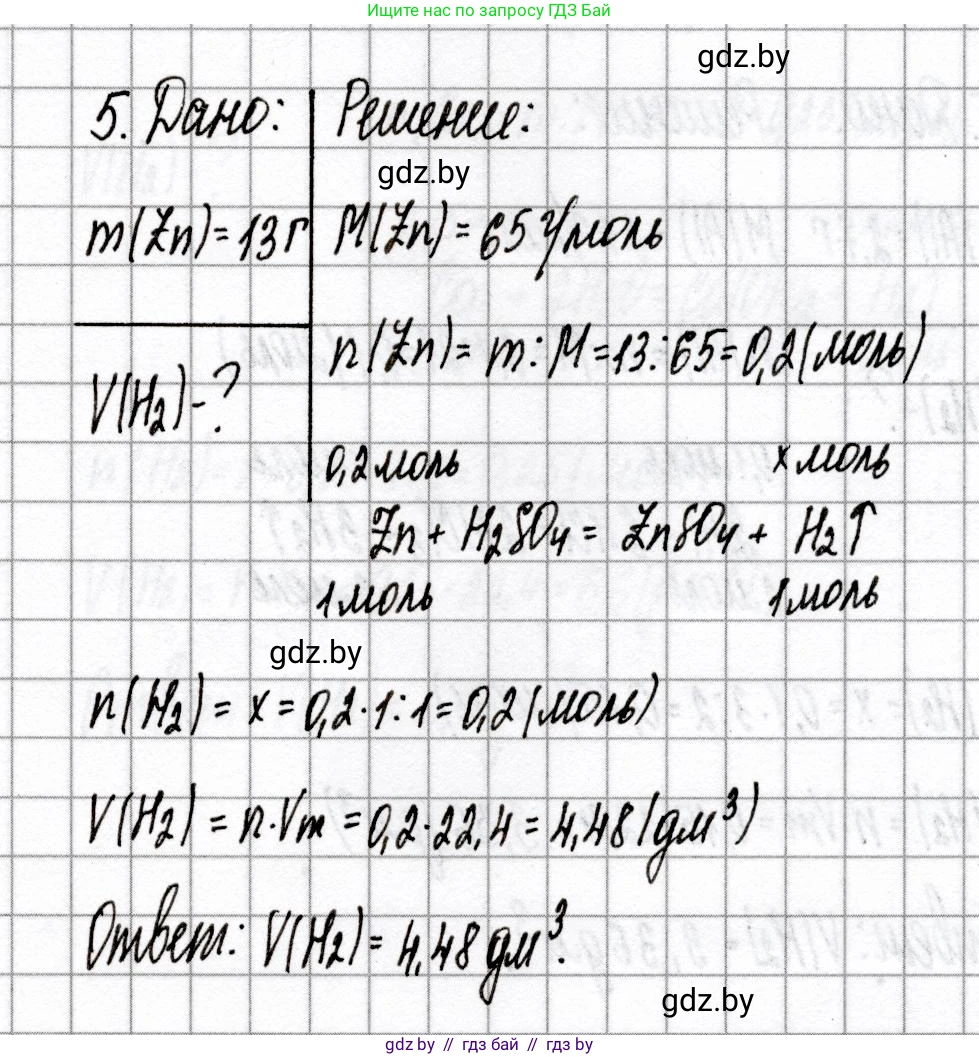 Ищите нас по запросу ГДЗ Бай
gdz.by
5. Дано: Решение:
gdz.by
m(Zn)=13г M(Zn)=65 г/моль
n(Zn)= m:M=13:65=0,2(моль)
V(H₂)-?
0,2моль xмоль
Zn + H₂SO₄ = ZnSO₄ + H₂↑
1моль 1моль
gdz.by
n(H₂) = x = 0,2·1:1=0,2(моль)
V(H₂) = n·Vm =0,2·22,4 = 4,48(дм³)
Ответ: V(H₂)= 4,48 дм³.
gdz.by
gdz.by // гдз бай // гдз by